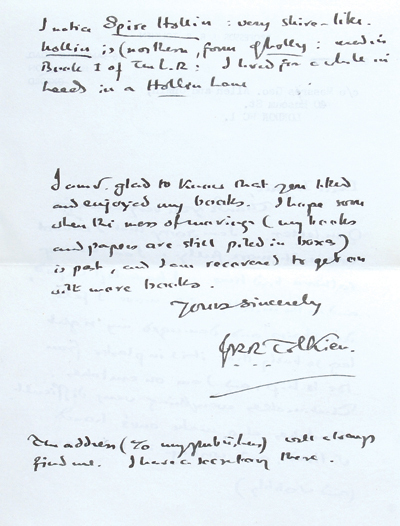 I notice Spire Hollin : very shire-like.
Hollin is (northern) form of holly : used in
Book I of The L.R : I lived for a while in
Leeds in a Hollin Lane
I am v. glad to know that you liked
and enjoyed my books. I hope soon
when the mess of moving (my books
and papers are still piled in boxes)
is past, and I am recovered to get on
with more books.
Yours sincerely
JRR Tolkien.
The address (to my publishers) will always
find me. I have a secretary there.